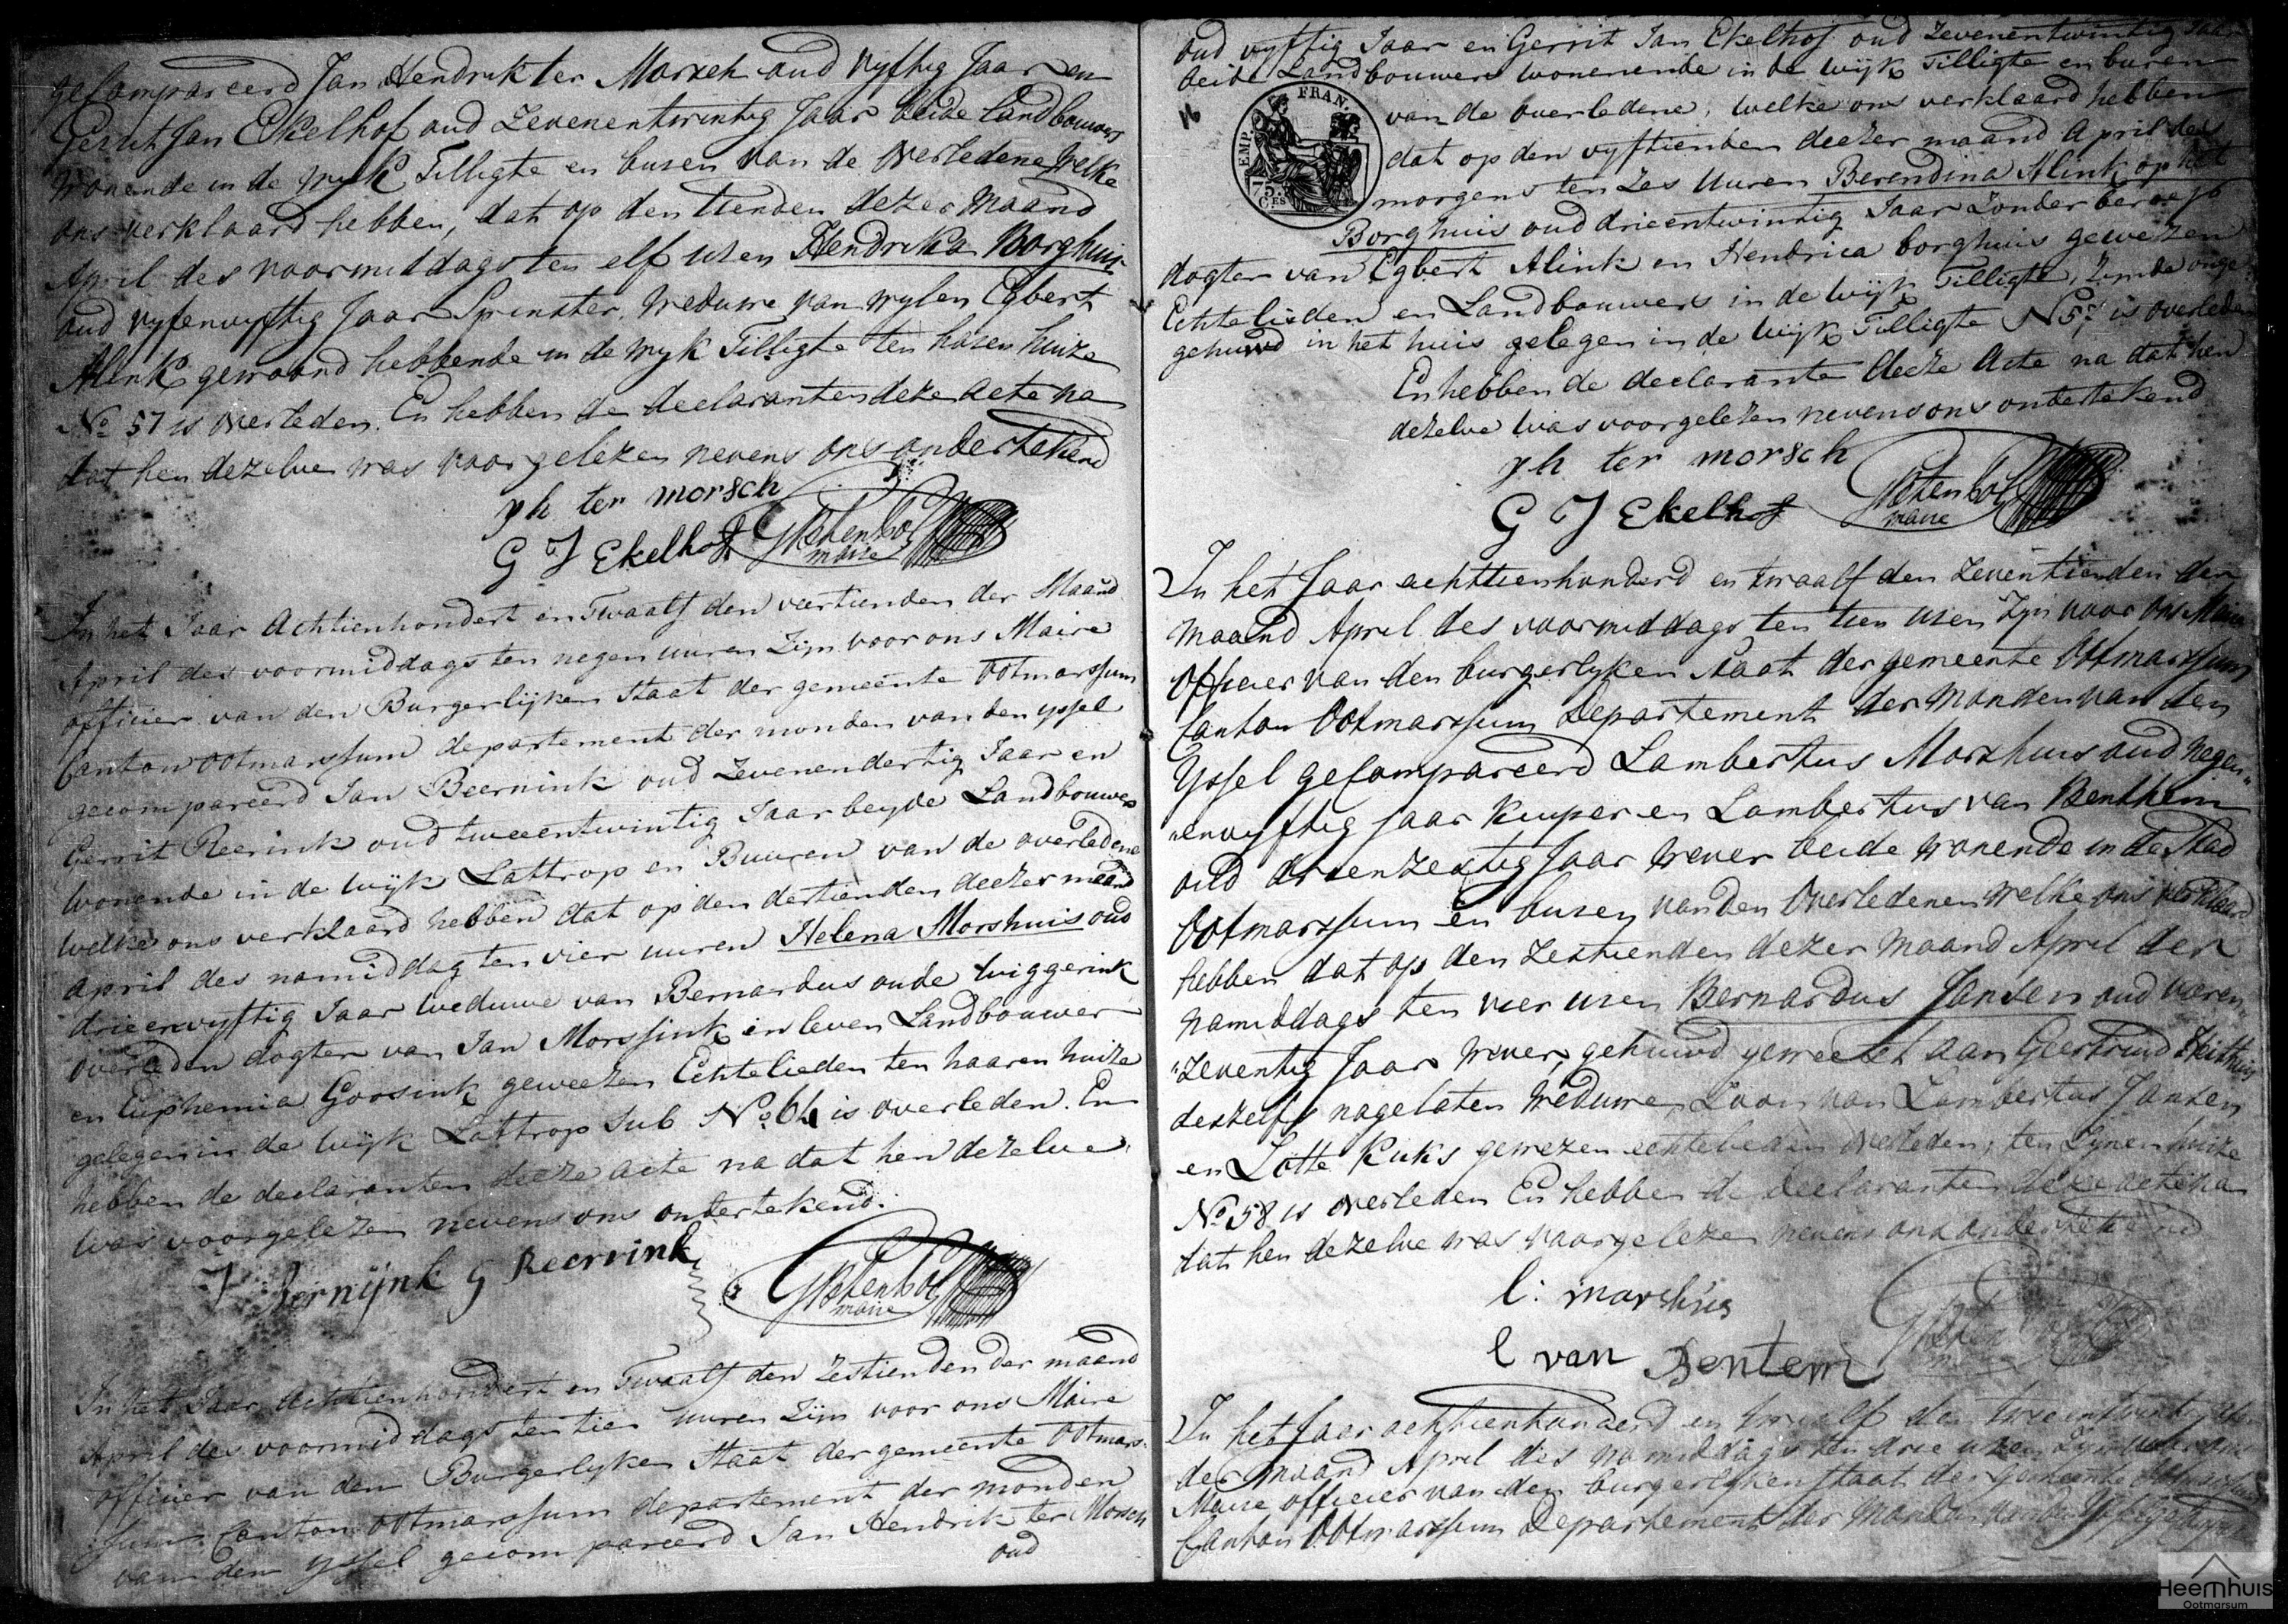 gecompareerd Jan Hendrik ter Morsch oud vyftig Jaar en
Gerrit Jan Ekelhof oud Zevenentwintig Jaar beide Landbouwers
wonende in de wyk Tilligte en buren van de Overledene welke
ons verklaard hebben, dat op den tienden dezer Maand
April des voormiddags ten elf uren Hendrika Borghuis
oud vyfenvyftig Jaar Spinster, weduwe van wylen Egbert
Alink gewoond hebbende in de wyk Tilligte ten haren huize
No 57 is overleden. En hebben de declaranten deze acte na
dat hen dezelve was voorgelezen nevens ons ondertekend
jh ter morsch
G J Ekelhof
maire
In het Jaar Achtienhondert en Twaalf den veertienden der Maand
April des voormiddags ten negen uuren Zijn voor ons Maire
officier van den Burgerlijken Staat der gemeente Ootmarssum
Canton Ootmarssum departement der monden van den yssel
gecompareerd Jan Beernink oud Zevenendertig Jaar en
Gerrit Reerink oud tweeentwintig Jaar beyde Landbouwers
wonende in de wijk Lattrop en Buuren van de overledene
welke ons verklaard hebben dat op den dertienden deezer maand
April des namiddag ten vier uuren Helena Morshuis oud
drieenvyftig Jaar weduwe van Bernardus oude wiggerink
overleden dogter van Jan Morssink in leven Landbouwer
en Euphemia Goosink geweezen Echtelieden ten haaren huize
gelegen in de wijk Lattrop Sub No 64 is overleden. En
hebben de declaranten deeze acte na dat hen dezelve
was voorgelezen nevens ons ondertekend.
J Bernijnk G Reerrink
maire
In het Jaar Achtienhondert en Twaalf den Zestienden der maand
April des voormiddags ten tien uuren Zijn voor ons Maire
officier van den Burgerlyken Staat der gemeente Ootmars-
sum Canton Ootmarssum departement der monden
van den yssel gecompareerd Jan Hendrik ter Morsch
oud
oud vyftig Jaar en Gerrit Jan Ekelhof oud Zevenentwintig Jaar
beide Landbouwers wonenende in de wijk Tilligte en buren
van de overledene, welke ons verklaard hebben
dat op den vyftienden deezer maand April des
morgens ten Zes Uuren Berendina Alink op het
Borghuis oud drieentwintig Jaar Zonder beroep
dogter van Egbert Alink en Hendrica borghuis gewezen
Echtelieden en Landbouwers in de wijk Tilligte, Zynde onge-
gehuwd in het huis gelegen in de wijk Tilligte N 57 is overleden
En hebben de declarante deeze Acte na dat hen
dezelve was voorgelezen nevens ons ondertekend
EMP. FRAN.
75
CES
jh ter morsch
G J Ekelhof
maire
In het Jaar achttienhonderd en twaalf den Zeventienden der
maand April des voormiddags ten tien uren Zyn voor ons Maire
Officier van den burgerlyken Staat der gemeente Ootmarssum
Canton Ootmarssum Departement der Monden van den
Yssel gecompareerd Lambertus Morshuis oud negen-
envyftig Jaar Kuyper en Lambertus van Benthem
oud drienzestig Jaar wever beide wonende in de Stad
Ootmarssum en buren van den Overledenen welke ons verklaard
hebben dat op den Zestienden dezer Maand April der
namiddags ten vier uren Bernardus Jansen oud vieren-
Zeventig Jaar wever, gehuwd geweest aan Geertruid
deszelfs nagelaten weduwe, Zoon van Lambertus Jansen
en Lotte Kuks gewezen echtelieden overleden, ten Zynen huize
No 58 is overleden En hebben de declaranten deze acte na
dat hen dezelve was voorgelezen nevens ons ondertekend
l: morshuis
l van Bentem
In het Jaar achttienhonderd en twaalf den tweeentwintigsten
der maand April des namiddags ten drie uren Zyn voor ons
Maire officier van den burgerlyken staat der gemeente Ootmarssum
Canton Ootmarssum Departement der Monden van den Yssel
Heemhuis
Ootmarsum